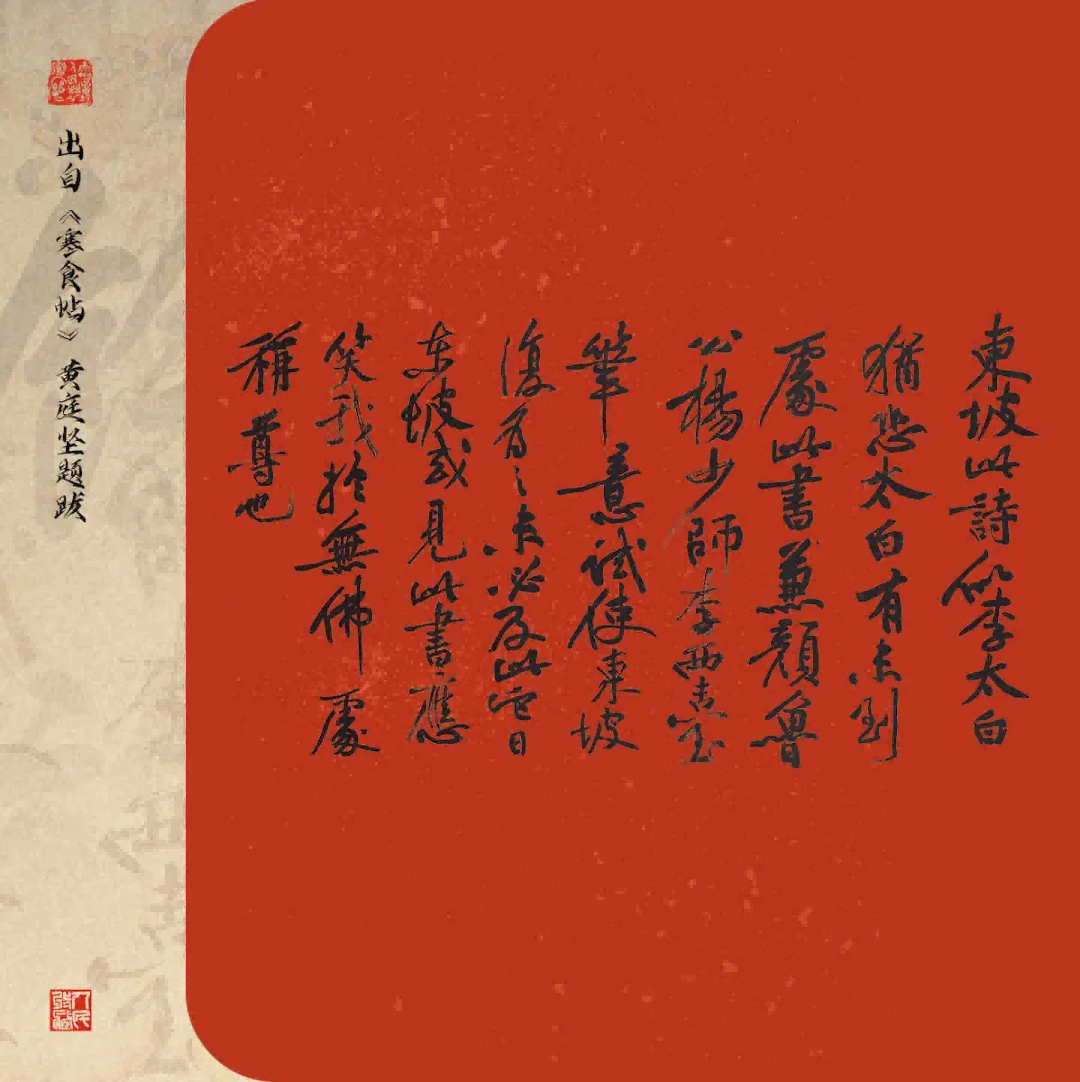 東坡此詩似李太白
猶恐太白有未到
處此書兼顏魯
公楊少師李西臺
筆意試使東坡
復為之未必及此它日
東坡或見此書應
笑我於無佛處
稱尊也
出自《寒食帖》黄庭坚题跋